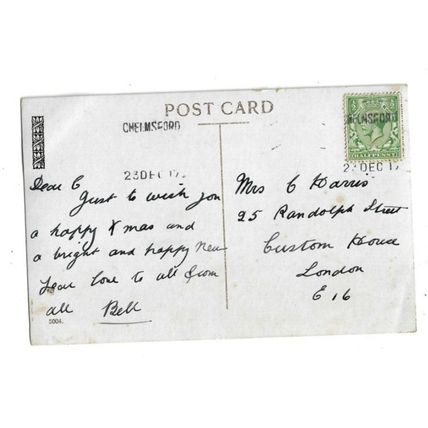 POST CARD
CHELMSFORD
23 DEC 17
HELMSFORD
23 DEC 17
HALFPENNY
Dear C
Just to wish you
a happy Xmas and
a bright and happy New
Year love to all from
all Bell
5004.
Mrs C Harris
25 Randolph Street
Custom House
London
E 16